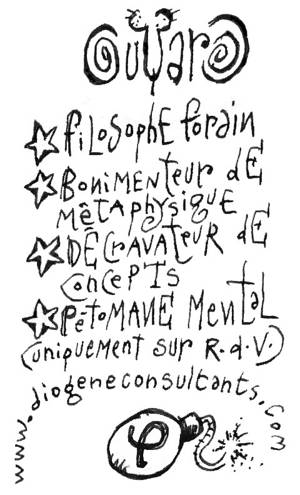 Outaro
Filosophe forain
Bonimenteur de
Mêtaphysique
Décravateur de
Concepts
Pétomane Mental
(uniquement sur R.d.V.)
www.diogeneconsultants.com
φ